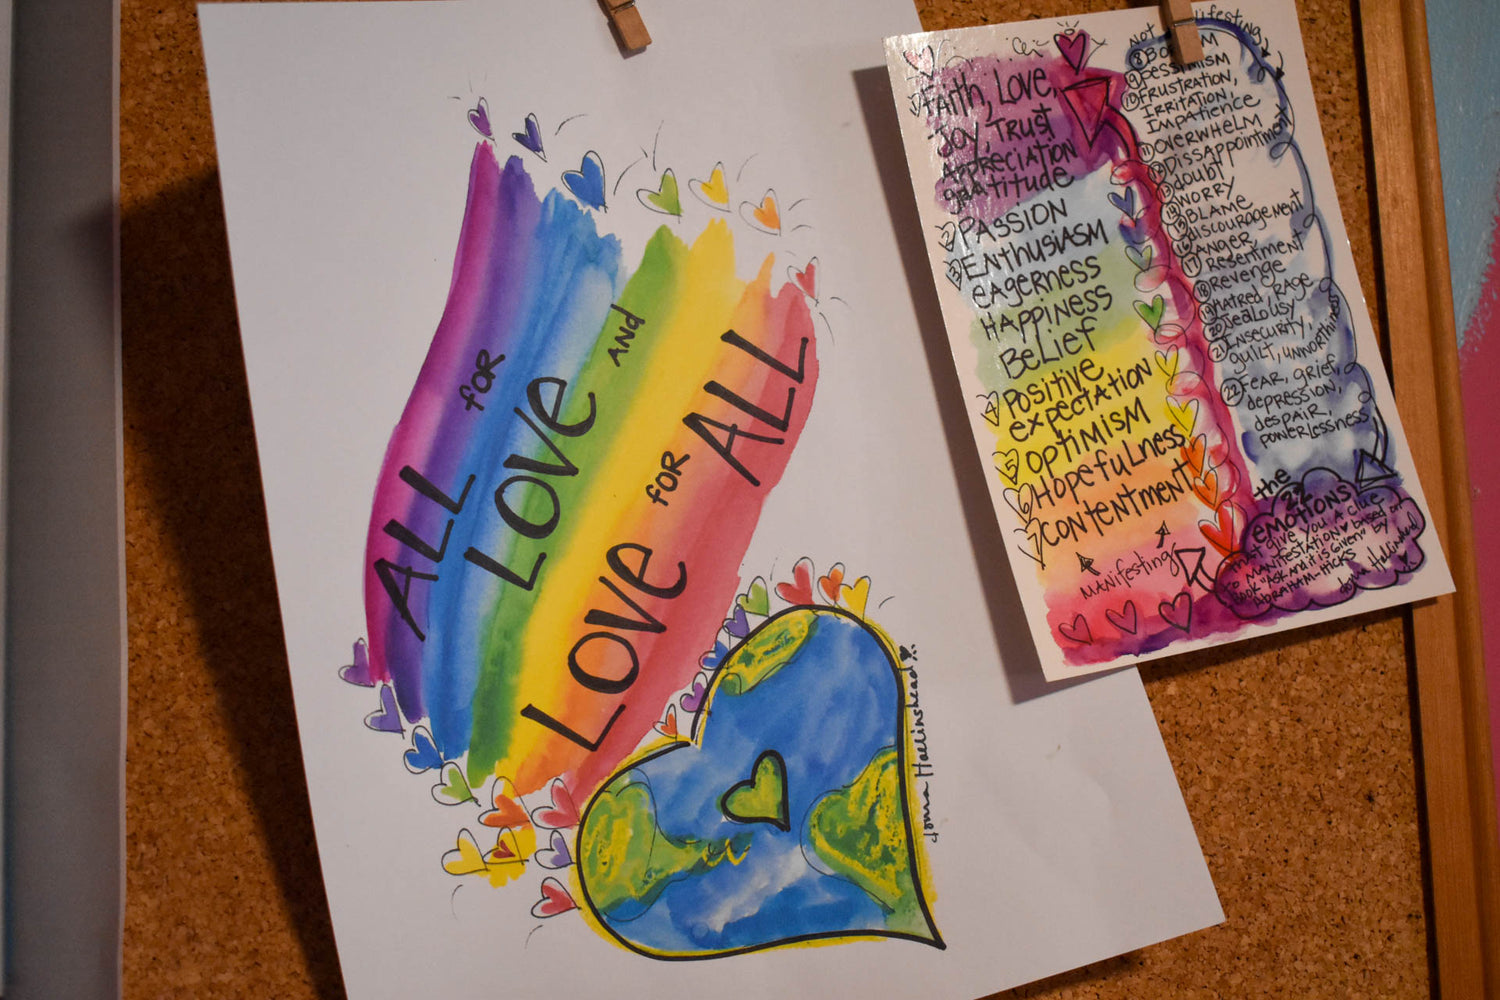 ALL for
LOVE AND
LOVE for ALL
Hollinshead
1 Faith, Love,
Joy, Trust
Appreciation
gratitude
2 PASSION
3 Enthusiasm
eagerness
Happiness
Belief
4 Positive
expectation
5 optimism
6 Hopefulness
7 contentment
Manifesting
Not
8 BOREDOM
9 Pessimism
10 Frustration,
Irritation,
Impatience
11 OVERWHELM
12 Dissappointment
13 doubt
14 WORRY
15 BLAME
16 discouragement
17 ANGER
Resentment
18 Revenge
19 Hatred, Rage
20 Jealousy
21 Insecurity,
guilt, unworthiness
22 Fear, grief,
depression,
despair,
powerlessness
the
22
emotions
that give you a clue
to manifestation based on
Book "Ask and it is Given" by
Abraham-Hicks